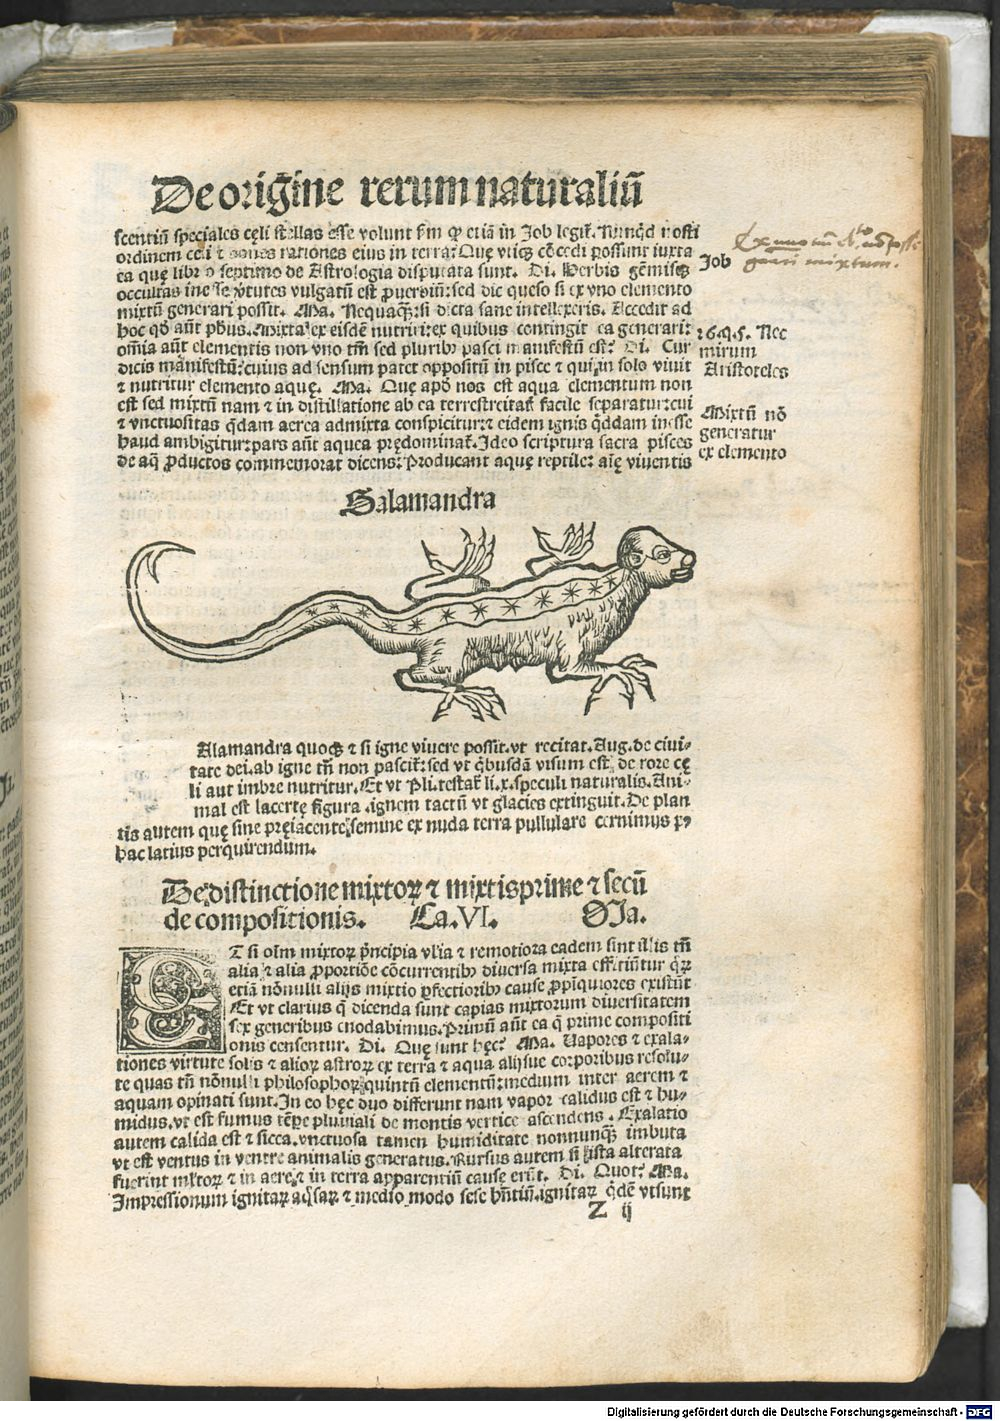 De origine rerum naturaliū
scentiū speciales cęli stellas esse volunt s̄m ꝙ etiā in Job legit᷑. Nunqd nosti
ordinem celi ⁊ pones rationes eius in terra? Que vtiqꝫ cōcedi possunt iuxta
ea quę libro septimo de Astrologia disputata sunt. Di. Herbis gēmisqꝫ
occultas inesse v̓tutes vulgatū est ꝓuerbiū: sed dic queso si ex vno elemento
mixtū generari possit. Ma. Nequaqꝫ: si dicta sane intellexeris. Accedit ad
hoc qd̓ aūt ph̓us. Mixta ex eisdē nutriri: ex quibus contingit ea generari:
om̄ia aūt elementis non vno tm̄ sed pluribꝰ pasci manifestū est? Di. Cur
dicis manifestū: cuius ad sensum patet oppositū in pisce ⁊ qui in solo viuit
⁊ nutritur elemento aquę. Ma. Quę apd̓ nos est aqua elementum non
est sed mixtū nam ⁊ in distillatione ab ea terrestreitas facile separatur: cui
⁊ vnctuositas qdam aerea admixta conspicitur: ⁊ eidem ignis qddam inesse
haud ambigitur: pars aūt aquea prędominat᷑. Ideo scriptura sacra pisces
de aq̄ ꝓductos commemorat dicens: Producant aquę reptile: aīę viuentis
Job
Ex uno
gnari mixtum.
26. q. 5. Nec
mirum
Aristoteles
Mixtū nō
generatur
ex elemento
Salamandra
Alamandra quoqꝫ ⁊ si igne viuere possit. vt recitat. Aug. de ciui⸗
tate dei. ab igne tn̄ non pascit᷑: sed vt qbusdā visum est de rore cę
li aut imbre nutritur. Et vt Pli. testat᷑ li. x. speculi naturalis. Ani⸗
mal est lacertę figura. ignem tactū vt glacies extinguit. De plan
tis autem quę sine pręiacente semine ex nuda terra pullulare cernimus pꝰ
hac latius perquirendum.
De distinctione mixtoꝝ ⁊ mixtis prime ⁊ secū
de compositionis. Ca. VI. Ma.
ET si oīm mixtoꝝ pncipia vlīa ⁊ remotiora eadem sint illis tn̄
alia ⁊ alia ꝓportiōe cōcurrentibꝰ diuersa mixta efficiūtur qꝝ
etiā nōnulli alijs mixtio pfectioribꝰ cause ꝓpīquiores existūt
Et vt clarius q̄ dicenda sunt capias mixtorum diuersitatem
sex generibus enodabimus. Primū aūt ea q̄ prime compositi
onis censentur. Di. Quę sunt hęc? Ma. Uapores ⁊ exala⸗
tiones virtute solis ⁊ alioꝝ astroꝝ ex terra ⁊ aqua alijsue corporibus resolu⸗
te quas tn̄ nōnulli philosophoꝝ quintū elementū: medium inter aerem ⁊
aquam opinati sunt. In eo hęc duo differunt nam vapor calidus est ⁊ hu⸗
midus. vt est fumus tēpe pluuiali de montis vertice ascendens. Exalatio
autem calida est ⁊ sicca. vnctuosa tamen humiditate nonnunqꝫ imbuta
vt est ventus in ventre animalis generatus. Rursus autem si ista alterata
fuerint mixtoꝝ ⁊ in aere, ⁊ in terra apparentiū cause erūt. Di. Quot? Ma.
Impressionum ignitaꝝ aqsaꝝ ⁊ medio modo sese hn̄tiū. ignitaꝝ qdē vt sunt
Z ij
Digitalisierung gefördert durch die Deutsche Forschungsgemeinschaft - DFG